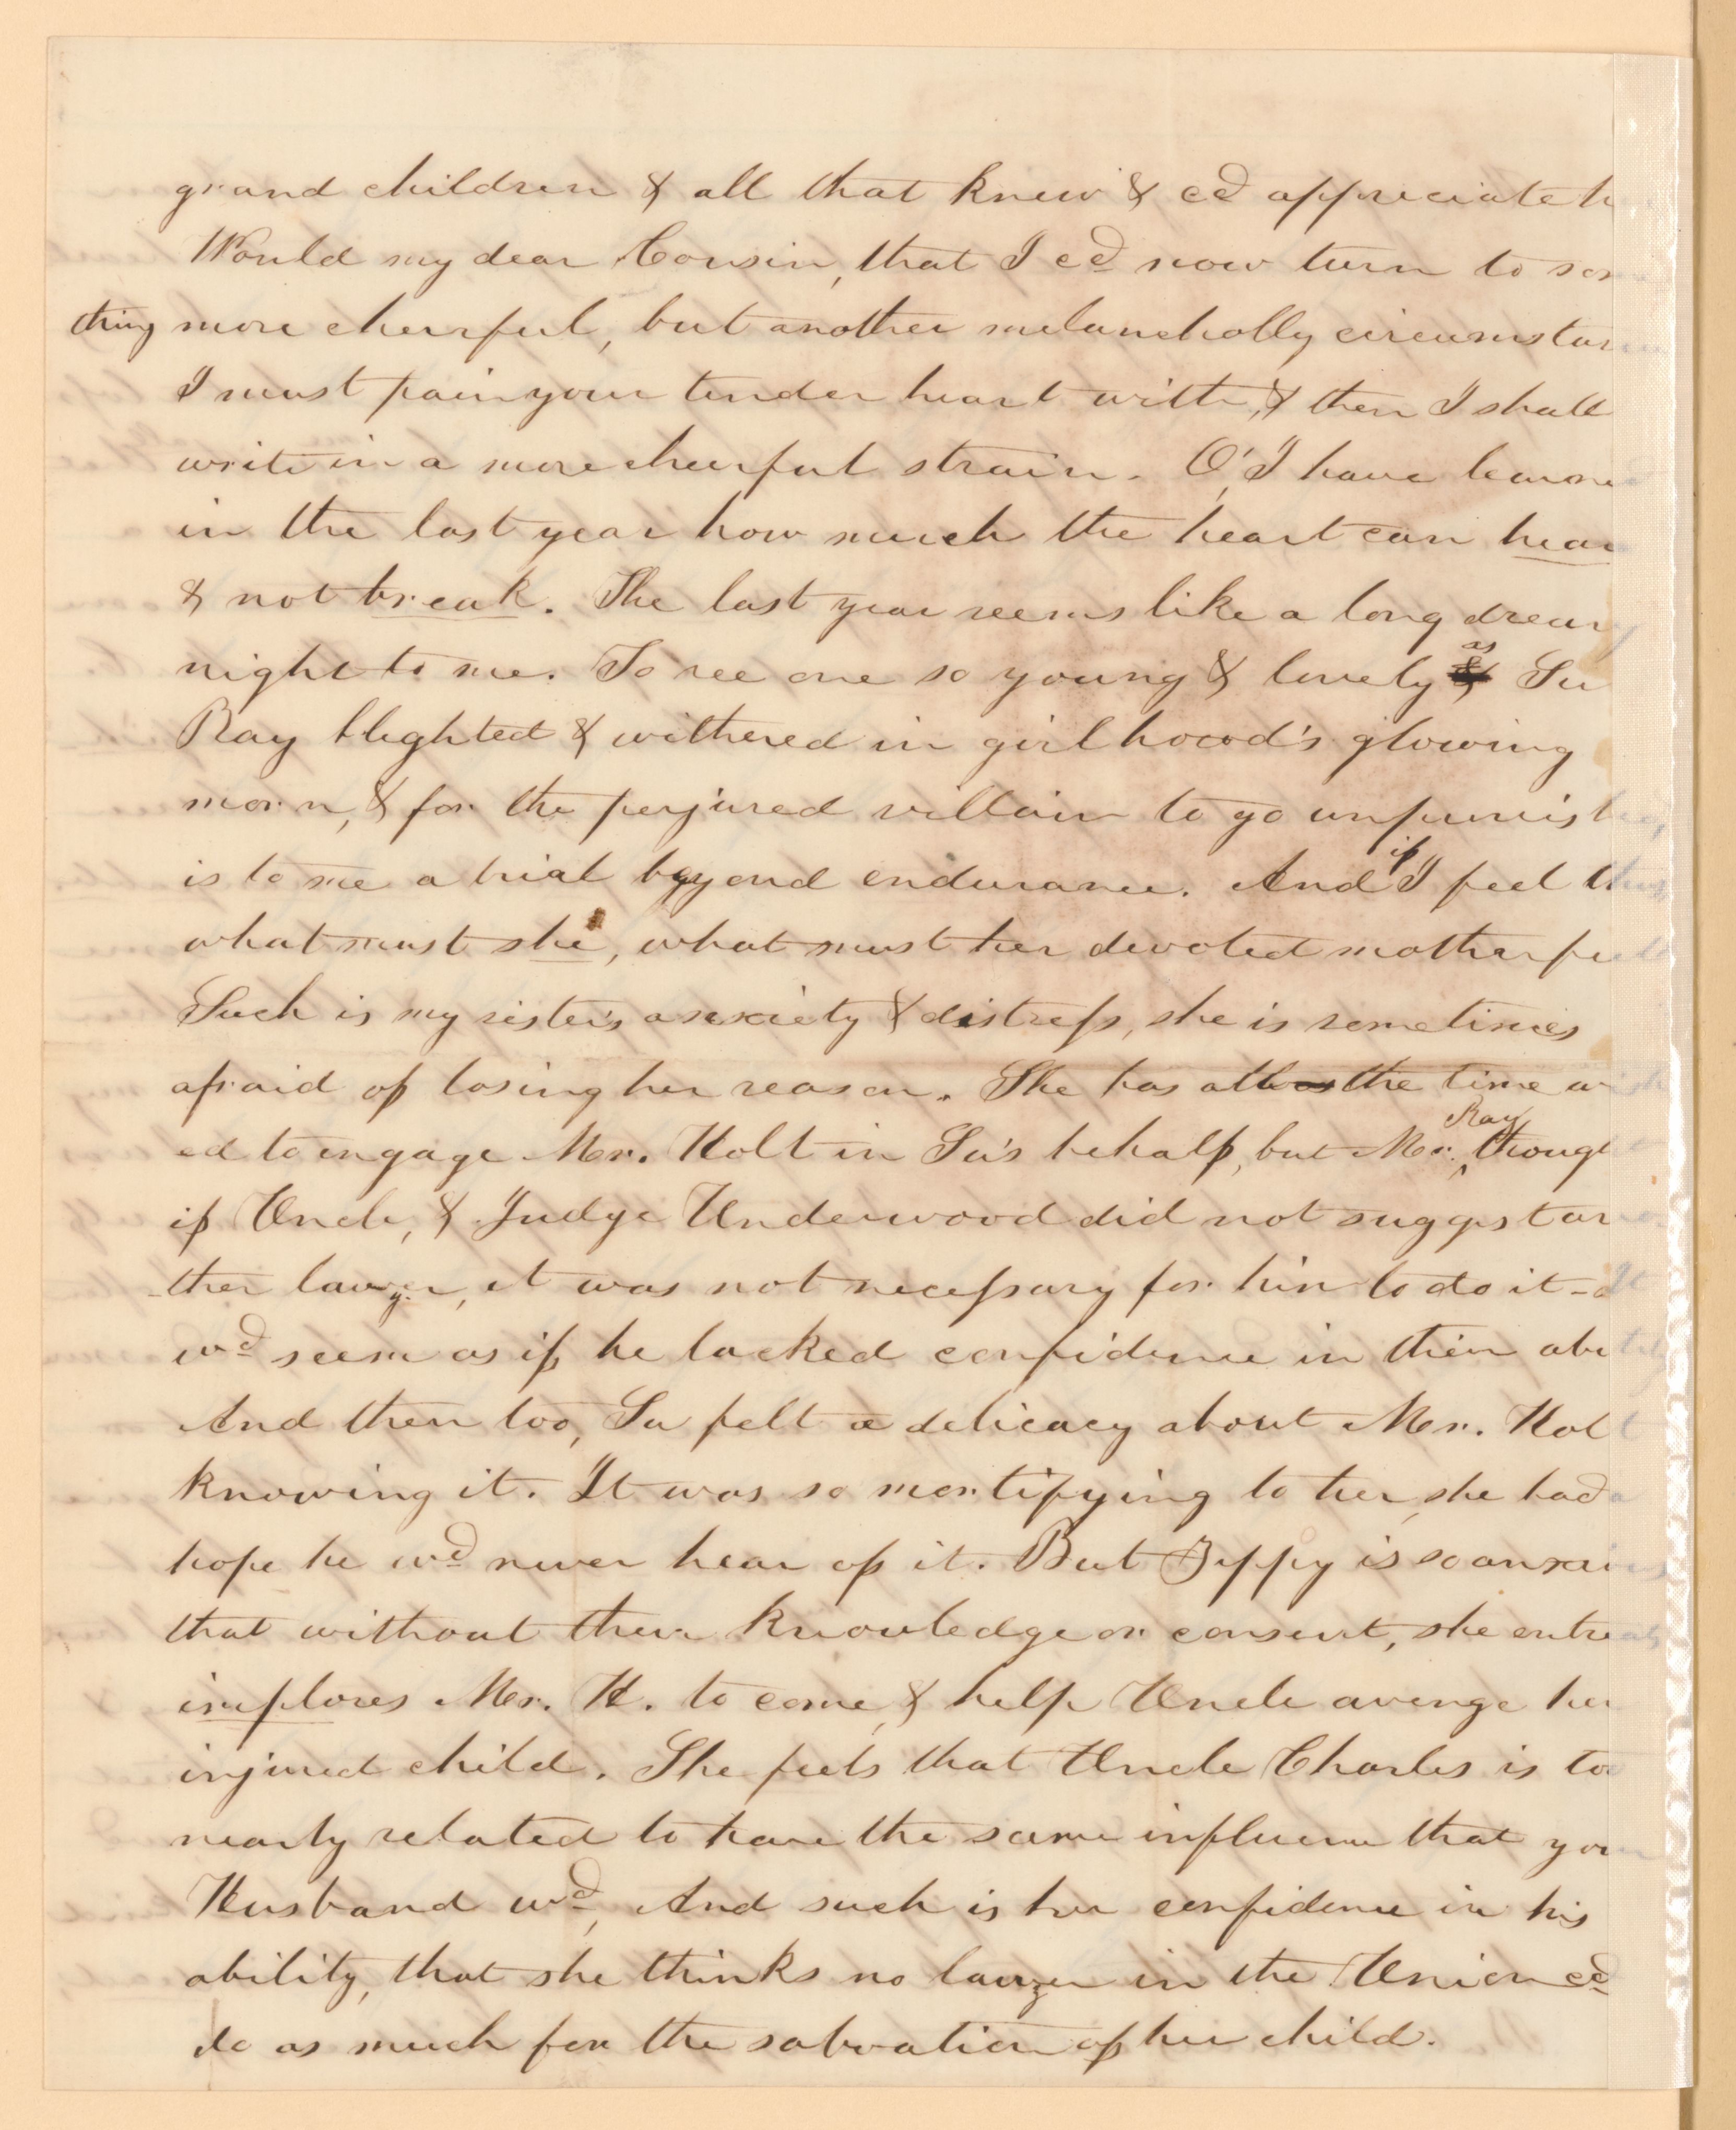 grand children & all that knew & cd appreciate h
Would my dear Cousin, that I cd now turn to som
thing more cheerful, but another melancholly circumstan
I must pain your tender heart with, & then I shall
write in a more cheerful strain. O, I have learne
in the last year how much the heart can bear
& not break. The last year seems like a long dreary
night to me. To see one so young & lovely as Su
Ray blighted & withered in girlhood's glowing
morn, & for the perjured villain to go unpunish
is to me a trial beyond endurance. And if I feel thus
what must she, what must her devoted mother feel
Such is my sister's anxiety & distress, she is sometimes
afraid of losing her reason. She has all the time wish
ed to engage Mr. Holt in Su's behalf, but Mr. Ray thought
if Uncle, & Judge Underwood did not suggest ano
ther lawyer, it was not necessary for him to do it - It
wd seem as if he lacked confidence in their ability
And then too, Su felt a delicacy about Mr. Holt
knowing it. It was so mortifying to her, she had a
hope he wd never hear of it. But Zippy is so anxious
that without their knowledge or consent, she entreats
implores Mr. H. to come, & help Uncle avenge her
injured child. She feels that Uncle Charles is too
nearly related to have the same influence that your
Husband wd, And such is her confidence in his
ability, that she thinks no lawyer in the Union cd
do as much for the salvation of her child.